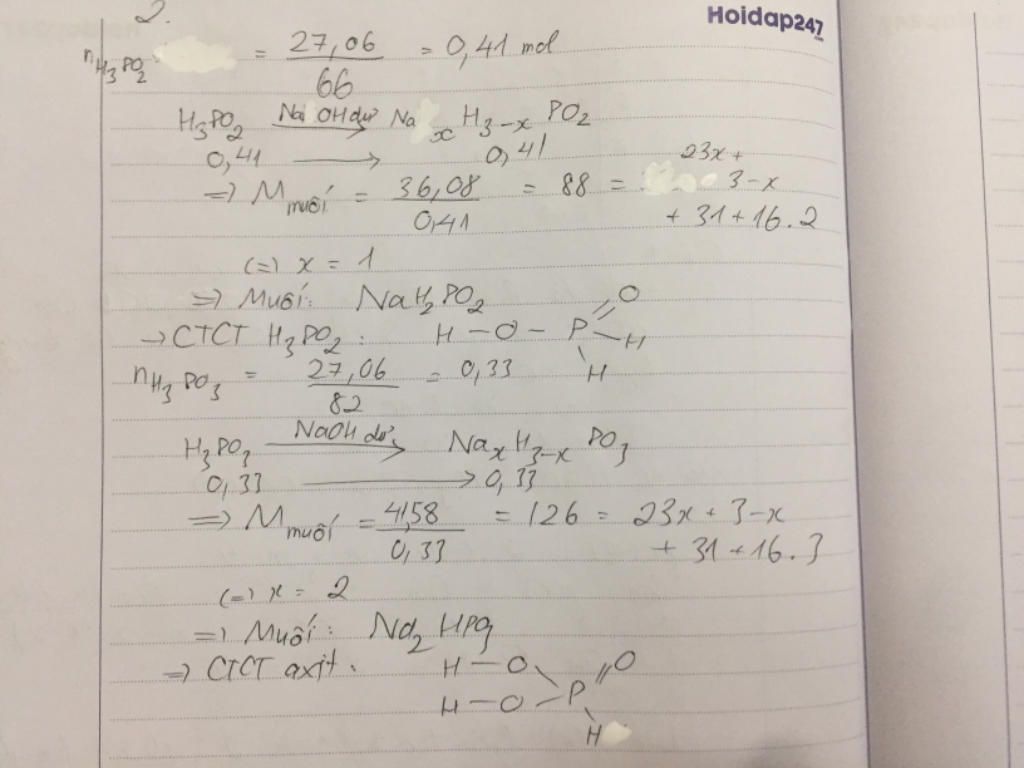 Hoidap247
.com
2.
nH3PO2 = 27,06 / 66 = 0,41 mol
H3PO2 —NaOH dư→ Na x H3-x PO2
0,41 → 0,41
=> M muối = 36,08 / 0,41 = 88 = 23x + 3-x + 31 + 16.2
(=) x = 1
=> Muối: NaH2PO2
→ CTCT H3PO2 : H - O - P = O H H
nH3PO3 = 27,06 / 82 = 0,33
H3PO3 —NaOH dư→ NaxH3-x PO3
0,33 → 0,33
=> M muối = 41,58 / 0,33 = 126 = 23x + 3-x + 31 + 16.3
(=) x = 2
=> Muối: Na2HPO3
=> CTCT axit : H - O H - O P = O H